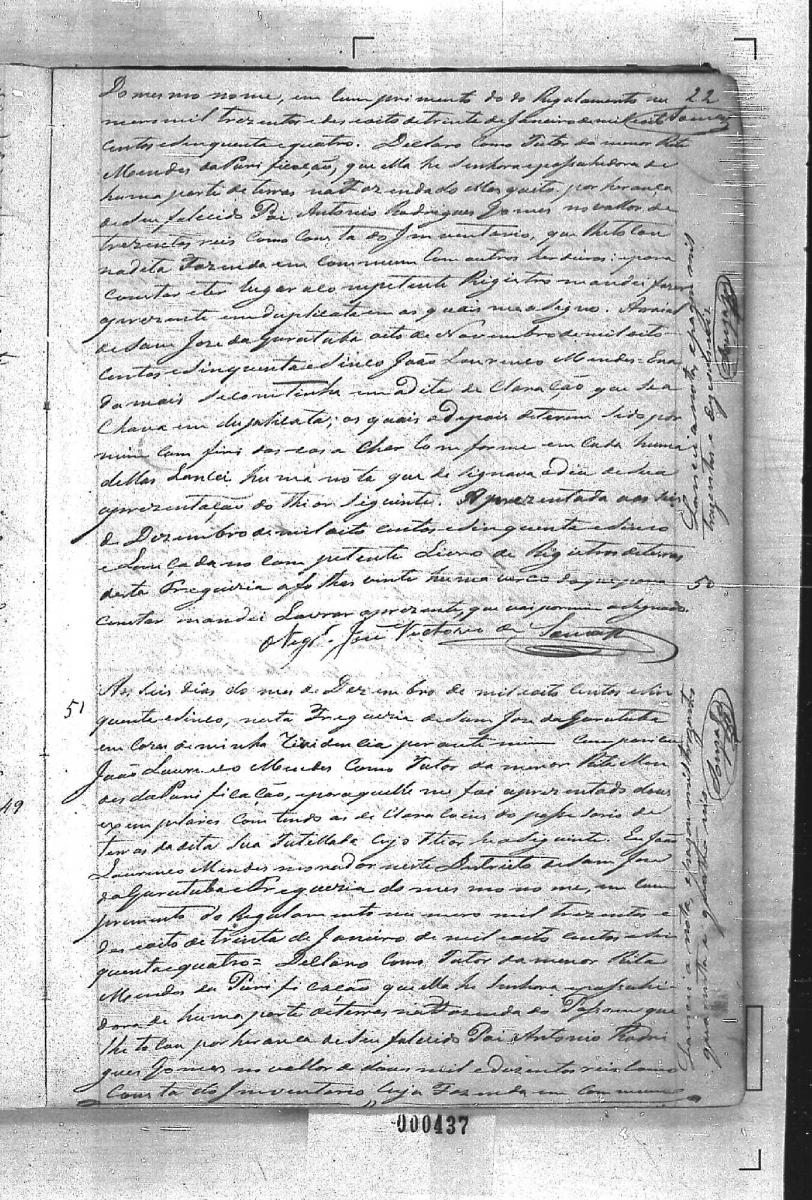 22
do mesmo nome, em Cumprimento do do Regalamento nu
mero mil trezentos e des oito de trinta de Janeiro de mil oito Souza
centos e sinquenta e quatro. Decllaro Como Tutor da menor Rita
Mendes da Purificação, que ella he Senhora e possuhidora de
huma parte de terras na Fazenda do Mosquito, por herança
de Seu falecido Pai Antonio Rodrigues Gomes no vallor de
trezentos reis como Consta do Inventario, que lhe to Cou
na dita Fazenda em Commum Com outros herdeiros: e para
constar e ter lugar a Competente Registro mandei fazer
a prezente em duplicata em as quais me a Signo. Arraial
de Sam Jose da Gurutuba oito de Novembro de mil oito
Centos e Sinquenta e Sinco João Lourenco Mendes = E na
da mais Se continha em a dita de Claração que Se a
Chava em dupplicata; os quais e depois de terem Sido por
mim Com firi dos e os a Char Com forme em Cada huma
dellas Lancei huma nota que de Signava o dia de Sua
aprezentação do theor Siguinte. Aprezentada aos Seis
de Dezembro de mil oito Centos e Sinquenta e Sinco
e Lançada no Com petente Livro de Registros de terras
desta Freguezia a folhas vinte huma verço do que para
constar mandei Lavrar a prezente, que vai por mim a Signado.
O Vigr.º José Victorio de Souza
50
Lancei a nota, e pagou mil
trezentos e
Souza
51
Aos Seis dias do mes de Dezembro de mil oito Centos e Sin
quenta e Sinco, nesta Freguezia de Sam Jose da Gurutuba
em Cazas de minha Rezidencia perante mim Compareceu
João Lourenco Mendes Como Tutor da menor Rita Men
des da Purificação, e por aquelle me foi aprezentado dous
exemplares Com tendo as de Claracoens do possesorio de
terras da dita Sua Tutellada Cujo theor he o Siguinte. Eu João
Lourenco Mendes morador neste Destricto de Sam Jose
da Gurutuba e Freguezia do mes mo no me, em Cum
primento do Regalamento nu mero mil trezentos e
des e oito de trinta de Janeiro de mil oito Centos e Sin
quenta e quatro = Decllaro Como Tutor da menor Rita
Mendes da Purificação que ella he Senhora e possuhi
dora de huma parte de terras na Fazenda do que
lhe to Cou por herança de Seu falecido Pai Antonio Rodri
gues Gomes no vallor de dous mil e duzentos reis Como
Consta do Inventario Cuja Fazenda em Commum
Lancei a nota, e pagou mil trezentos
quarenta e quatro reis
Souza
49
000437